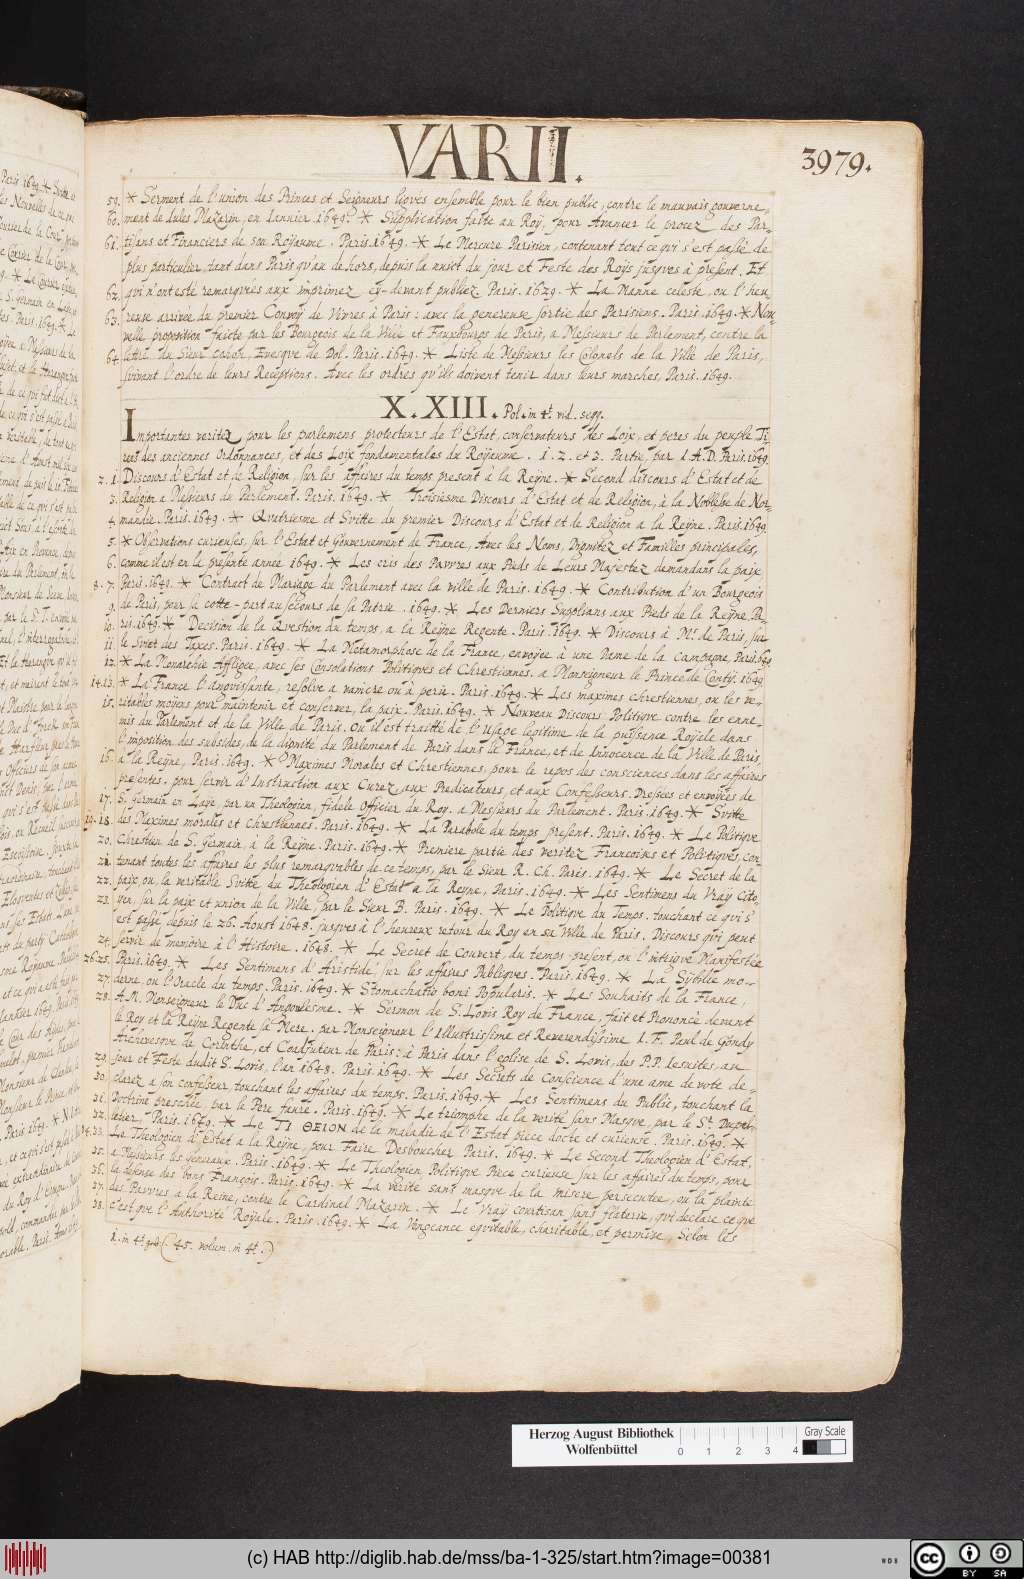 VARII.
3979.
59. * Serment de l'union des Princes et Seigneurs ligvés ensemble pour le bien public, contre le mauvais gouverne-
60. ment de Jules Mazarin, en Iannier 1649. * Supplication faite au Roy, pour Avancer le procez des Par-
61. tisans et Financiers de son Royaume. Paris. 1649. * Le Mercure Parisien, contenant tout ce qui s'est passé de
plus particulier, tant dans Paris qu'au dehors, depuis la nuict du jour et Feste des Roys jusqves à present. Et
62. qvi n'ont esté remarqvées aux imprimez cy-devant publiez Paris. 1649. * La Manne celeste, ou l'heu
63. reuse arrivée du premier Convoy de Vivres à Paris: avec la genereuse sortie des Parisiens. Paris. 1649. * Nou
velle proposition faicte par les Bourgeois de la Ville et Fauxbourgs de Paris, a Messieurs de Parlement, contre la
64. lettre du Sieur Cohon, Evesqve de Dol. Paris. 1649. * Liste de Messieurs les Colonels de la Ville de Paris,
suivant l'ordre de leurs Receptions. Avec les ordres qv'ils doivent tenir dans leurs marches, Paris. 1649.
X. XIII. Pol. in 4t. vid. seqq.
Importantes veritez pour les parlemens protecteurs de l'Estat, conservateurs des Loix, et peres du peuple Ti-
rées des anciennes Ordonnances, et des Loix fondamentales du Royaume. 1. 2. et 3. Partie, par I. A. D. Paris. 1649.
2. 1. Discours d'Estat et de Religion, sur les affaires du temps present à la Reyne. * Second discours d'Estat et de
3. Religion a Messieurs du Parlement. Paris. 1649. * Troisiesme Discours d'Estat et de Religion, à la Noblesse de Nor-
4. mandie. Paris. 1649. * Qvatriesme et Svitte du premier Discours d'Estat et de Religion a la Reyne. Paris. 1649.
5. * Observations curieuses, sur l'Estat et Gouvernement de France, Avec les Noms, Dignitez et Familles principales,
6. comme il est en la presente année 1649. * Les cris des Pauvres aux Pieds de Leurs Majestez demandans la paix
8. 7. Paris. 1649. * Contract de Mariage du Parlement avec la ville de Paris. 1649. * Contribution d'un Bourgeois
9. de Paris, pour sa cotte-part au secours de sa Patrie. 1649. * Les Derniers Supplians aux Pieds de la Reyne. Pa
10. ris. 1649. * Decision de la Qvestion du temps, a la Reyne Regente. Paris. 1649. * Discours à Mr. de Paris, sur
11. le Sviet des Taxes. Paris. 1649. * La Metamorphose de la France, envoyée à une Dame de la Campagne, Paris. 1649
12. * La Monarchie Affligee, avec ses Consolations Politiqves et Chrestiennes, a Monseigneur le Prince de Conty. 1649
14. 13. * La France languissante, resolve a vaincre ou à perir. Paris. 1649. * Les maximes chrestiennes, ou les ve-
15. ritables moyens pour maintenir et conserver, la paix. Paris. 1649. * Nouveau Discours Politiqve contre les enne-
mis du Parlement et de la Ville de Paris. Ou il est traitté de l'Usage legitime de la puissance Royale dans
l'imposition des subsides, de la dignité du Parlement de Paris dans la France, et de Innocence de la Ville de Paris,
16. à la Reyne, Paris. 1649. * Maximes Morales et Chrestiennes, pour le repos des consciences dans les affaires
presentes. pour servir d'Instruction aux Curez, aux Predicateurs, et aux Confesseurs. Dressées et envoyées de
17. S. Germain en Laye, par un Theologien, fidele officier du Roy. a Messieurs du Parlement. Paris. 1649. * Svitte
19. 18. des Maximes morales et chrestiennes. Paris. 1649. * La Parabole du temps present. Paris. 1649. * Le Politiqve
20. Chrestien de S. Germain, a la Reyne. Paris. 1649. * Premiere partie des veritez Francoises et Politiqves, con
21. tenant toutes les affaires les plus remarqvables de ce temps, par le Sieur R. Ch. Paris. 1649. * Le Secret de la
22. paix, ou, la veritable Svitte du Theologien d'Estat a la Reyne, Paris. 1649. * Les Sentimens du Vray Cito-
23. yen, sur la paix et union de la Ville, par le Sieur B. Paris. 1649. * Le Politiqve du Temps. touchant ce qvi s'
est passé depuis le 26. Aoust 1648. jusqves à l'heureux retour du Roy en sa Ville de Paris. Discours qvi peut
24. servir de memoire à l'Histoire. 1648. * Le Secret de Couvert, du temps present, ou l'intrigve Manifestée
26. 25. Paris. 1649. * Les Sentimens d'Aristide, sur les affaires Publiqves. Paris. 1649. * La Sybille mo-
27. derne, ou l'Oracle du temps. Paris. 1649. * Stomachatio boni Popularis. * Les Souhaits de la France,
28. A. M. Monseigneur le Duc d'Angoulesme. * Sermon de S. Lovis Roy de France, fait et Prononcé devant
le Roy et la Reyne Regente sa Mere. par Monseigneur l'Illustrissime et Reverendissime I. F. Paul de Gondy
Archevesqve de Corinthe, et Coadjuteur de Paris: à Paris dans l'eglise de S. Lovis, des P.P. Iesuites, au
29. jour et Feste dudit S. Lovis, l'an 1648. Paris. 1649. * Les Secrets de conscience d'une ame devote de-
30. clarez a son confesseur touchant les affaires du temps. Paris. 1649. * Les Sentimens du Public, touchant la
31. Doctrine preschée, par le Pere Faure. Paris. 1649. * Le triomphe de la verité sans Masqve, par le Sr. Dupel-
32. letier, Paris. 1649. * Le TI ΘΕΙΟΝ de la maladie de l'Estat piece docte et curieuse. Paris. 1649. *
34. 33. Le Theologien d'Estat a la Reyne, pour Faire Desboucher Paris. 1649. * Le Second Theologien d'Estat,
35. a Messieurs les Generaux. Paris. 1649. * Le Theologien Politiqve Piece curieuse sur les affaires du temps, pour
36. la defense des bons François. Paris. 1649. * La verité sans masqve de la misere persecutee, ou la plainte
37. des Pauvres a la Reine, contre le Cardinal Mazarin. * Le Vray courtisan sans flaterie, qvi declare ce qve
38. c'est qve l'Authorité Royale. Paris. 1649. * La Vengeance eqvitable, charitable, et permise, selon les
(45. volum. in 4t.)
Herzog August Bibliothek
Wolfenbüttel
0 1 2 3 4
Gray Scale
(c) HAB http://diglib.hab.de/mss/ba-1-325/start.htm?image=00381
WDB
cc BY SA